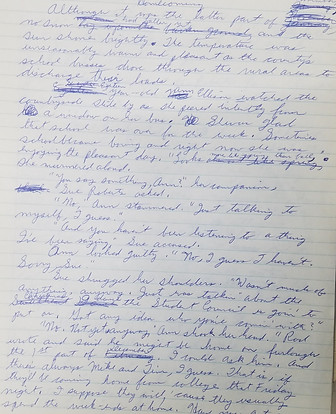 Homecoming
Although it was the latter part of
no snow and the
sun shone brightly. The temperature was
unseasonably warm and pleasant as the county's
school busses drove through the rural areas to
discharge their loads.
year-old Ellain watched the
countryside slide by as she peered intently from
a window on her bus. Eleven glad
that school was over for the week. Sometimes
school became boring and right now she was
enjoying the pleasant day. "Looks like spring,"
She murmured aloud.
"You say something, Ann?" her companion,
Sue Roberts asked.
"No," Ann stammered. "Just talking to
myself, I guess."
"And you haven't been listening to a thing
I've been saying," Sue accused.
Ann looked guilty. "No, I guess I haven't.
Sorry, Sue."
Sue shrugged her shoulders. "Wasn't much of
anything, anyway. Just was talkin' about the
the Student Council is goin' to
put on. Got any idea who you're comin' with?"
"No. Not yet anyway," Ann shook her head. "Post
wrote and said he might be home on furlough
the 1st part of I could ask him. And
there's always Mike and Tim, I guess. That is, if
they'll be coming home from college that Friday
night. I suppose they will, 'cause they usually
spend the week-ends at home.